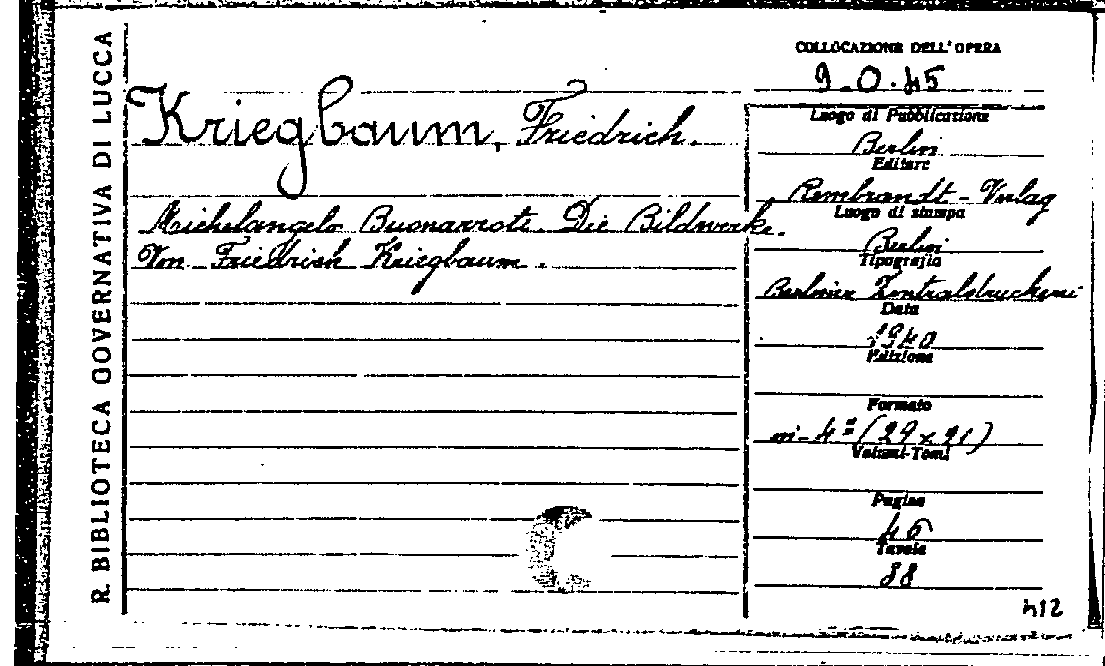 R. BIBLIOTECA GOVERNATIVA DI LUCCA
Kriegbaum, Friedrich.
Michelangelo Buonarroti. Die Bildwerke.
Von Friedrich Kriegbaum.
COLLOCAZIONE DELL'OPERA
9.0.45
Luogo di Pubblicazione
Berlin
Editore
Rembrandt-Verlag
Luogo di stampa
Berlin
Tipografia
Berliner Zentraldruckerei
Data
1940
Edizione
Formato
in-4° (29x21)
Volumi-Tomi
Pagine
46
Tavole
88
412